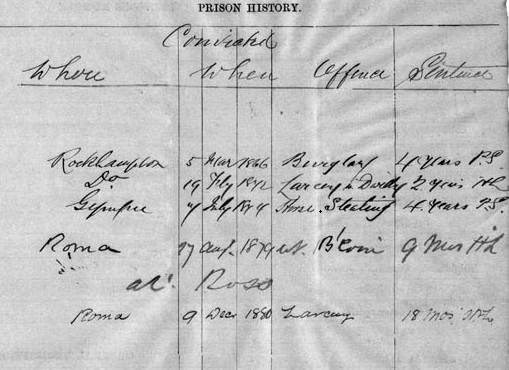 PRISON HISTORY.
Convicted
Where When Offence Sentence
Rockhampton 5 Mar 1866 Burglary 4 years P.S
Do 19 Feby 1872 Larceny in Dwelly 2 years HL
Gympie 7 July 1874 Horse Stealing 4 Years P.S.
Roma 27 Aug. 1879 9 Mos Hd
Ross
Roma 9 Dec 1880 Larceny 18 Mos. H.L